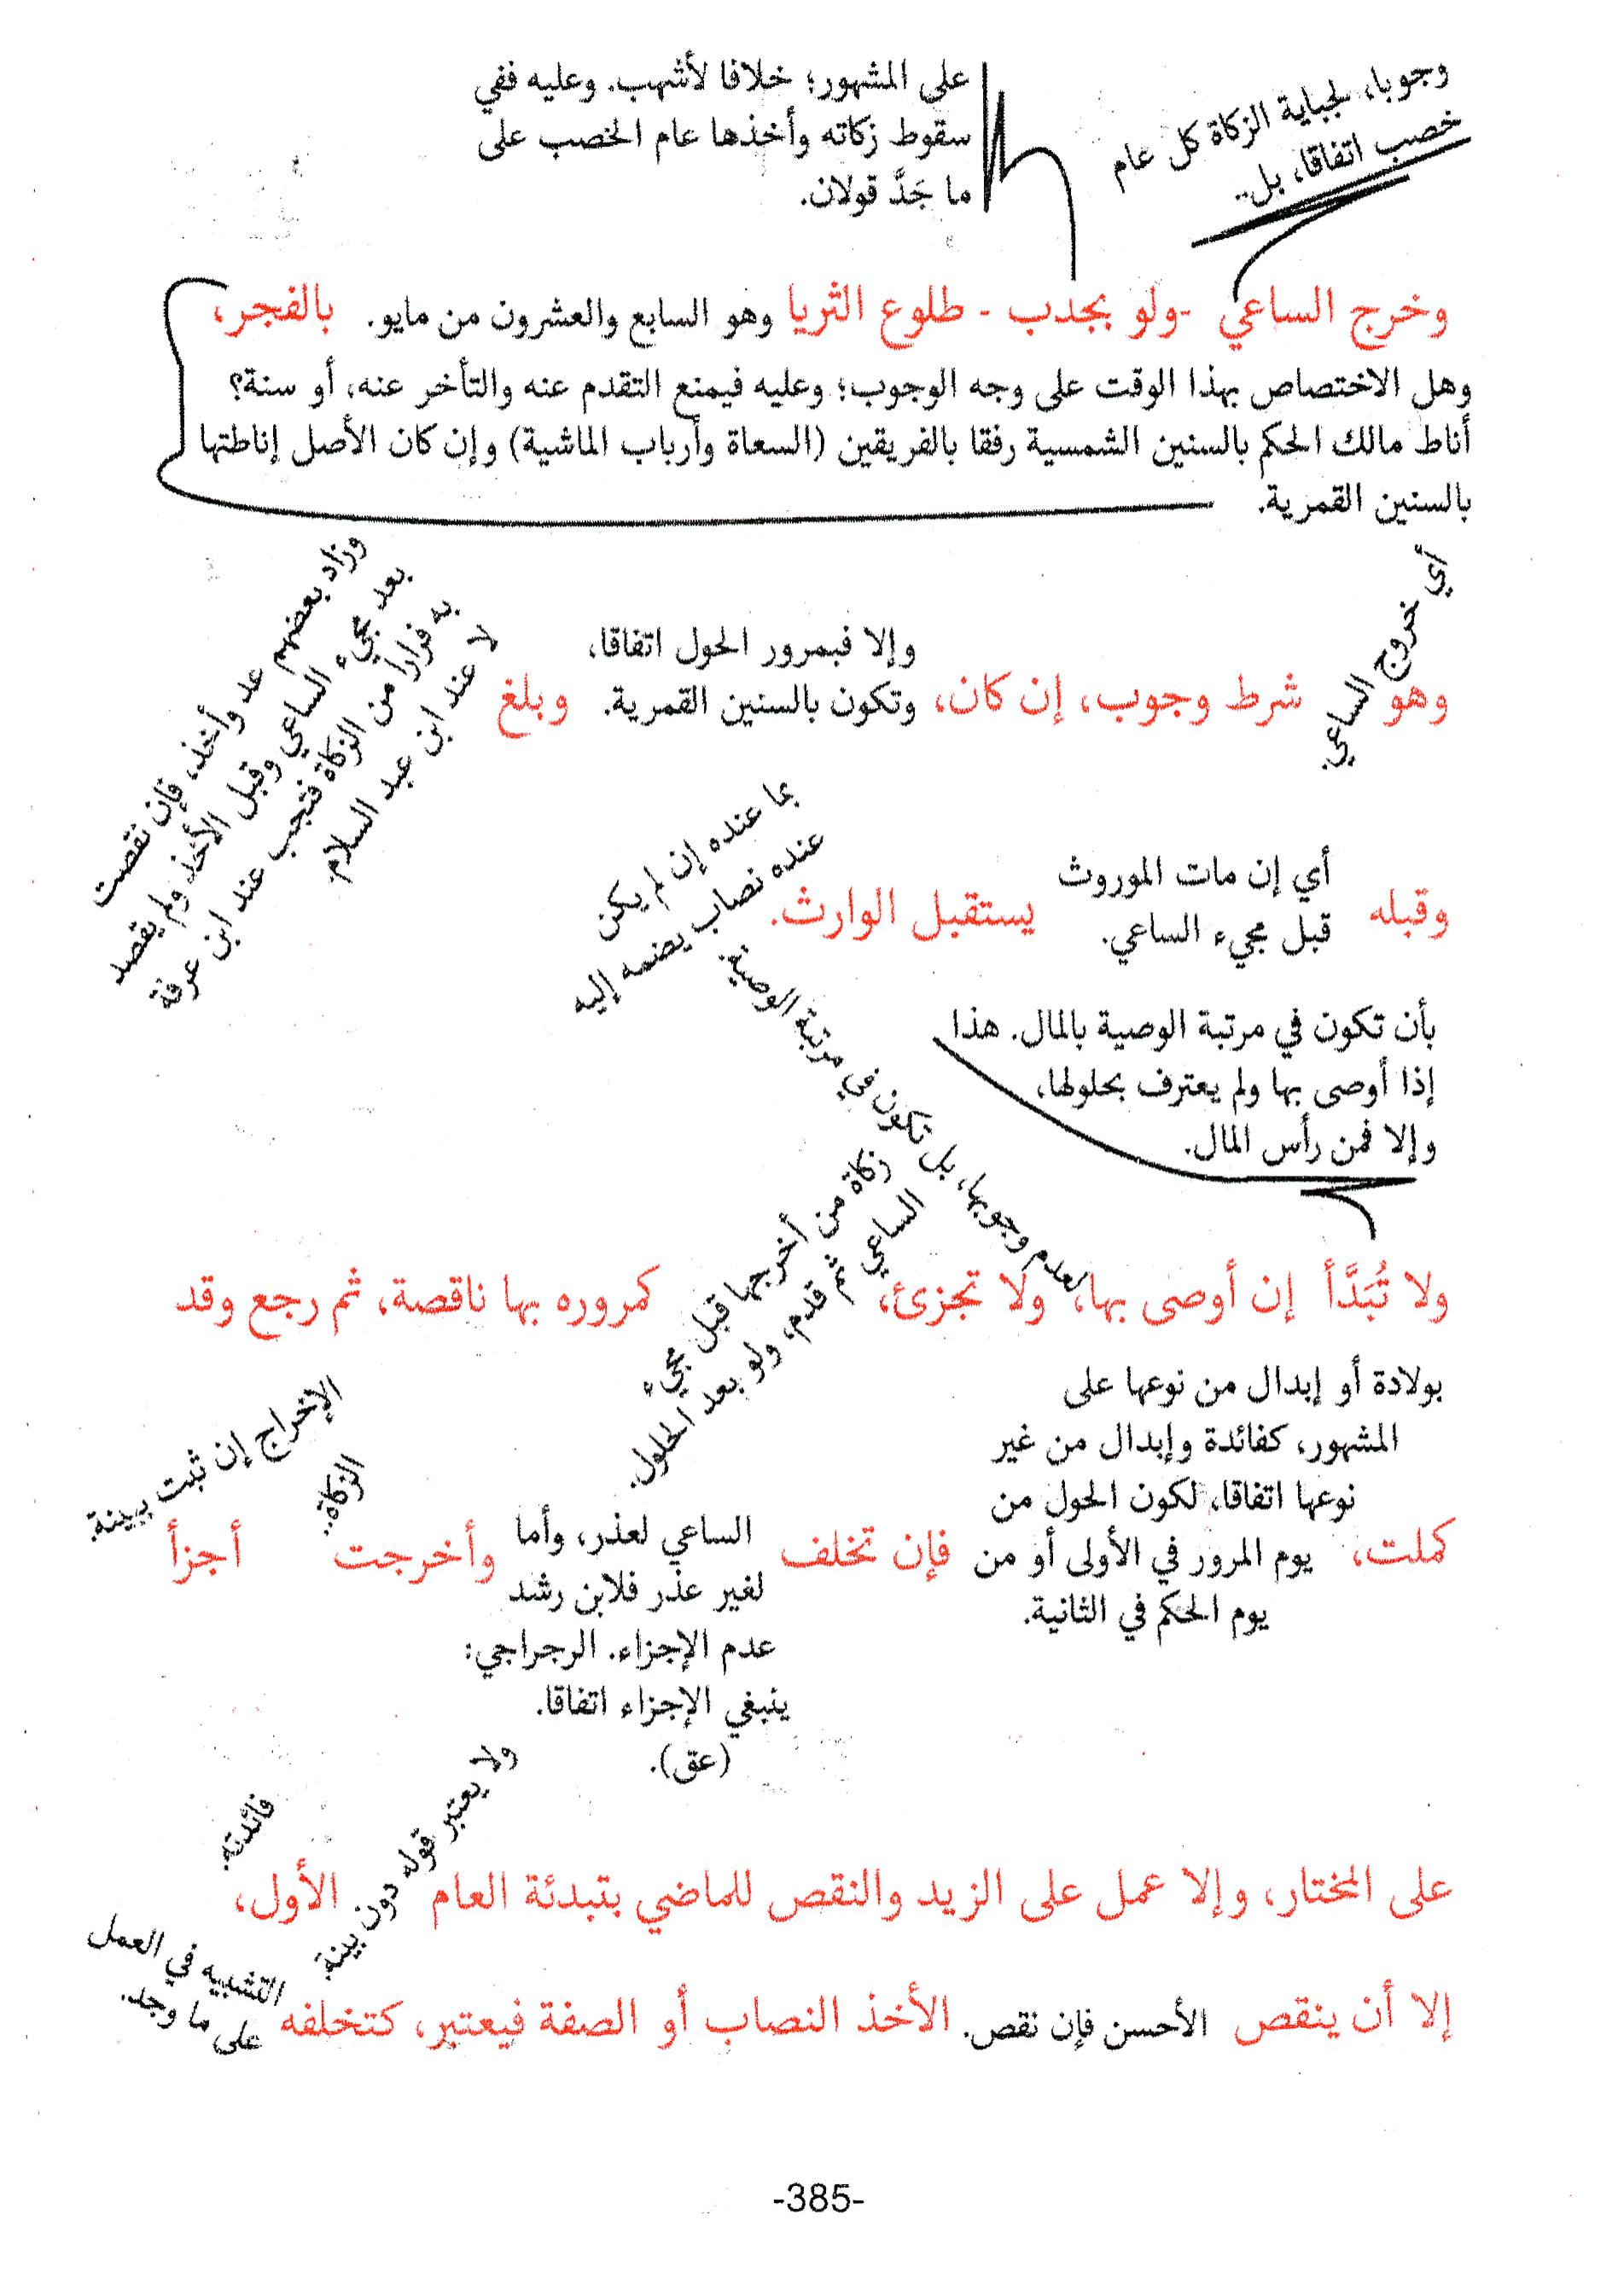 وجوبا، لجباية الزكاة كل عام
خصب اتفاقا، بل..
على المشهور؛ خلافا لأشهب. وعليه ففي
سقوط زكاته وأخذها عام الخصب على
ما جَدَّ قولان.
وخرج الساعي -ولو بجدب - طلوع الثريا وهو السابع والعشرون من مايو. بالفجر،
وهل الاختصاص بهذا الوقت على وجه الوجوب؛ وعليه فيمنع التقدم عنه والتأخر عنه، أو سنة؟
أناط مالك الحكم بالسنين الشمسية رفقا بالفريقين (السعاة وأرباب الماشية) وإن كان الأصل إناطتها
بالسنين القمرية.
وهو
أي خروج الساعي.
شرط وجوب، إن كان،
وإلا فبمرور الحول اتفاقا،
وتكون بالسنين القمرية.
وبلغ
وزاد بعضهم عد وأخذ، فإن نقصت
بعد مجيء الساعي وقبل الأخذ ولم يقصد
به فرارا من الزكاة فتجب عند ابن عرفة
لا عند ابن عبد السلام.
وقبله
أي إن مات الموروث
قبل مجيء الساعي.
يستقبل الوارث.
بما عنده إن لم يكن
عنده نصاب يضمه إليه
بأن تكون في مرتبة الوصية بالمال. هذا
إذا أوصى بها ولم يعترف بحلولها،
وإلا فمن رأس المال.
ولا تُبَدَّأ إن أوصى بها،
لعدم وجوبها، بل تكون في مرتبة الوصية.
ولا تجزئ،
زكاة من أخرجها قبل مجيء
الساعي ثم قدم، ولو بعد الحلول.
كمروره بها ناقصة، ثم رجع وقد
كملت،
بولادة أو إبدال من نوعها على
المشهور، كفائدة وإبدال من غير
نوعها اتفاقا، لكون الحول من
يوم المرور في الأولى أو من
يوم الحكم في الثانية.
فإن تخلف
الساعي لعذر، وأما
لغير عذر فلابن رشد
عدم الإجزاء. الرجراجي:
ينبغي الإجزاء اتفاقا.
(عق).
وأخرجت
الزكاة..
أجزأ
الإخراج إن ثبت ببينة.
على المختار، وإلا عمل على الزيد والنقص للماضي بتبدئة العام
ولا يعتبر قوله دون بينة.
الأول،
فائدته.
إلا أن ينقص الأحسن فإن نقص. الأخذ النصاب أو الصفة فيعتبر، كتخلفه
التشبيه في العمل
على ما وجد.
-385-